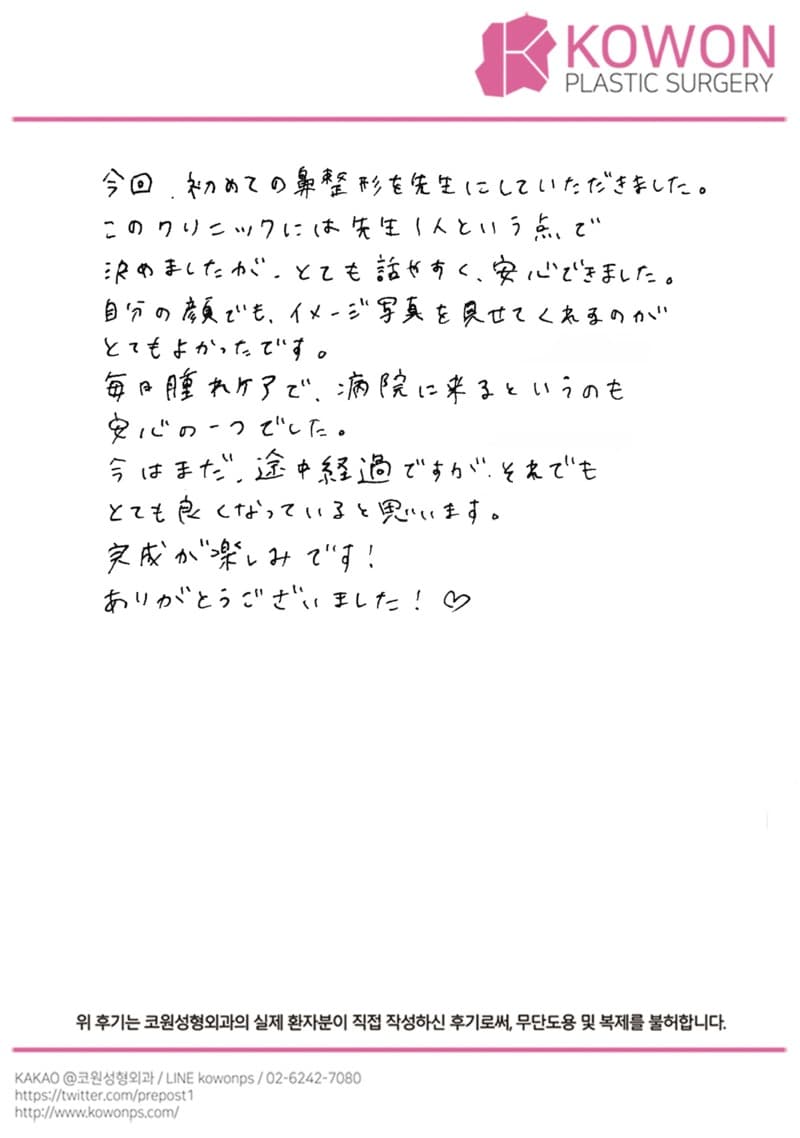 KOWON
PLASTIC SURGERY
今回、初めての鼻整形を先生にしていただきました。
このクリニックには先生1人という点で
決めましたが、とても話やすく、安心できました。
自分の顔でも、イメージ写真を見せてくれるのが
とてもよかったです。
毎日腫れケアで、病院に来るというのも
安心の一つでした。
今はまだ、途中経過ですが、それでも
とても良くなっていると思います。
完成が楽しみです!
ありがとうございました! ♡
위 후기는 코원성형외과의 실제 환자분이 직접 작성하신 후기로써, 무단도용 및 복제를 불허합니다.
KAKAO @코원성형외과 / LINE kowonps / 02-6242-7080
https://twitter.com/prepost1
http://www.kowonps.com/